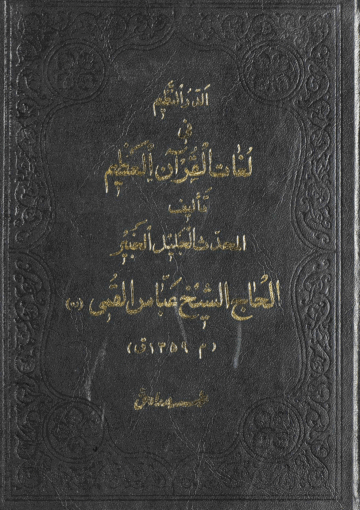 الدر النظیم
فی
لغات القرآن العظیم
تألیف
المحدث الجلیل الخبیر
الحاج الشیخ عباس القمی (ره)
(م ۱۳۵۹ ق)